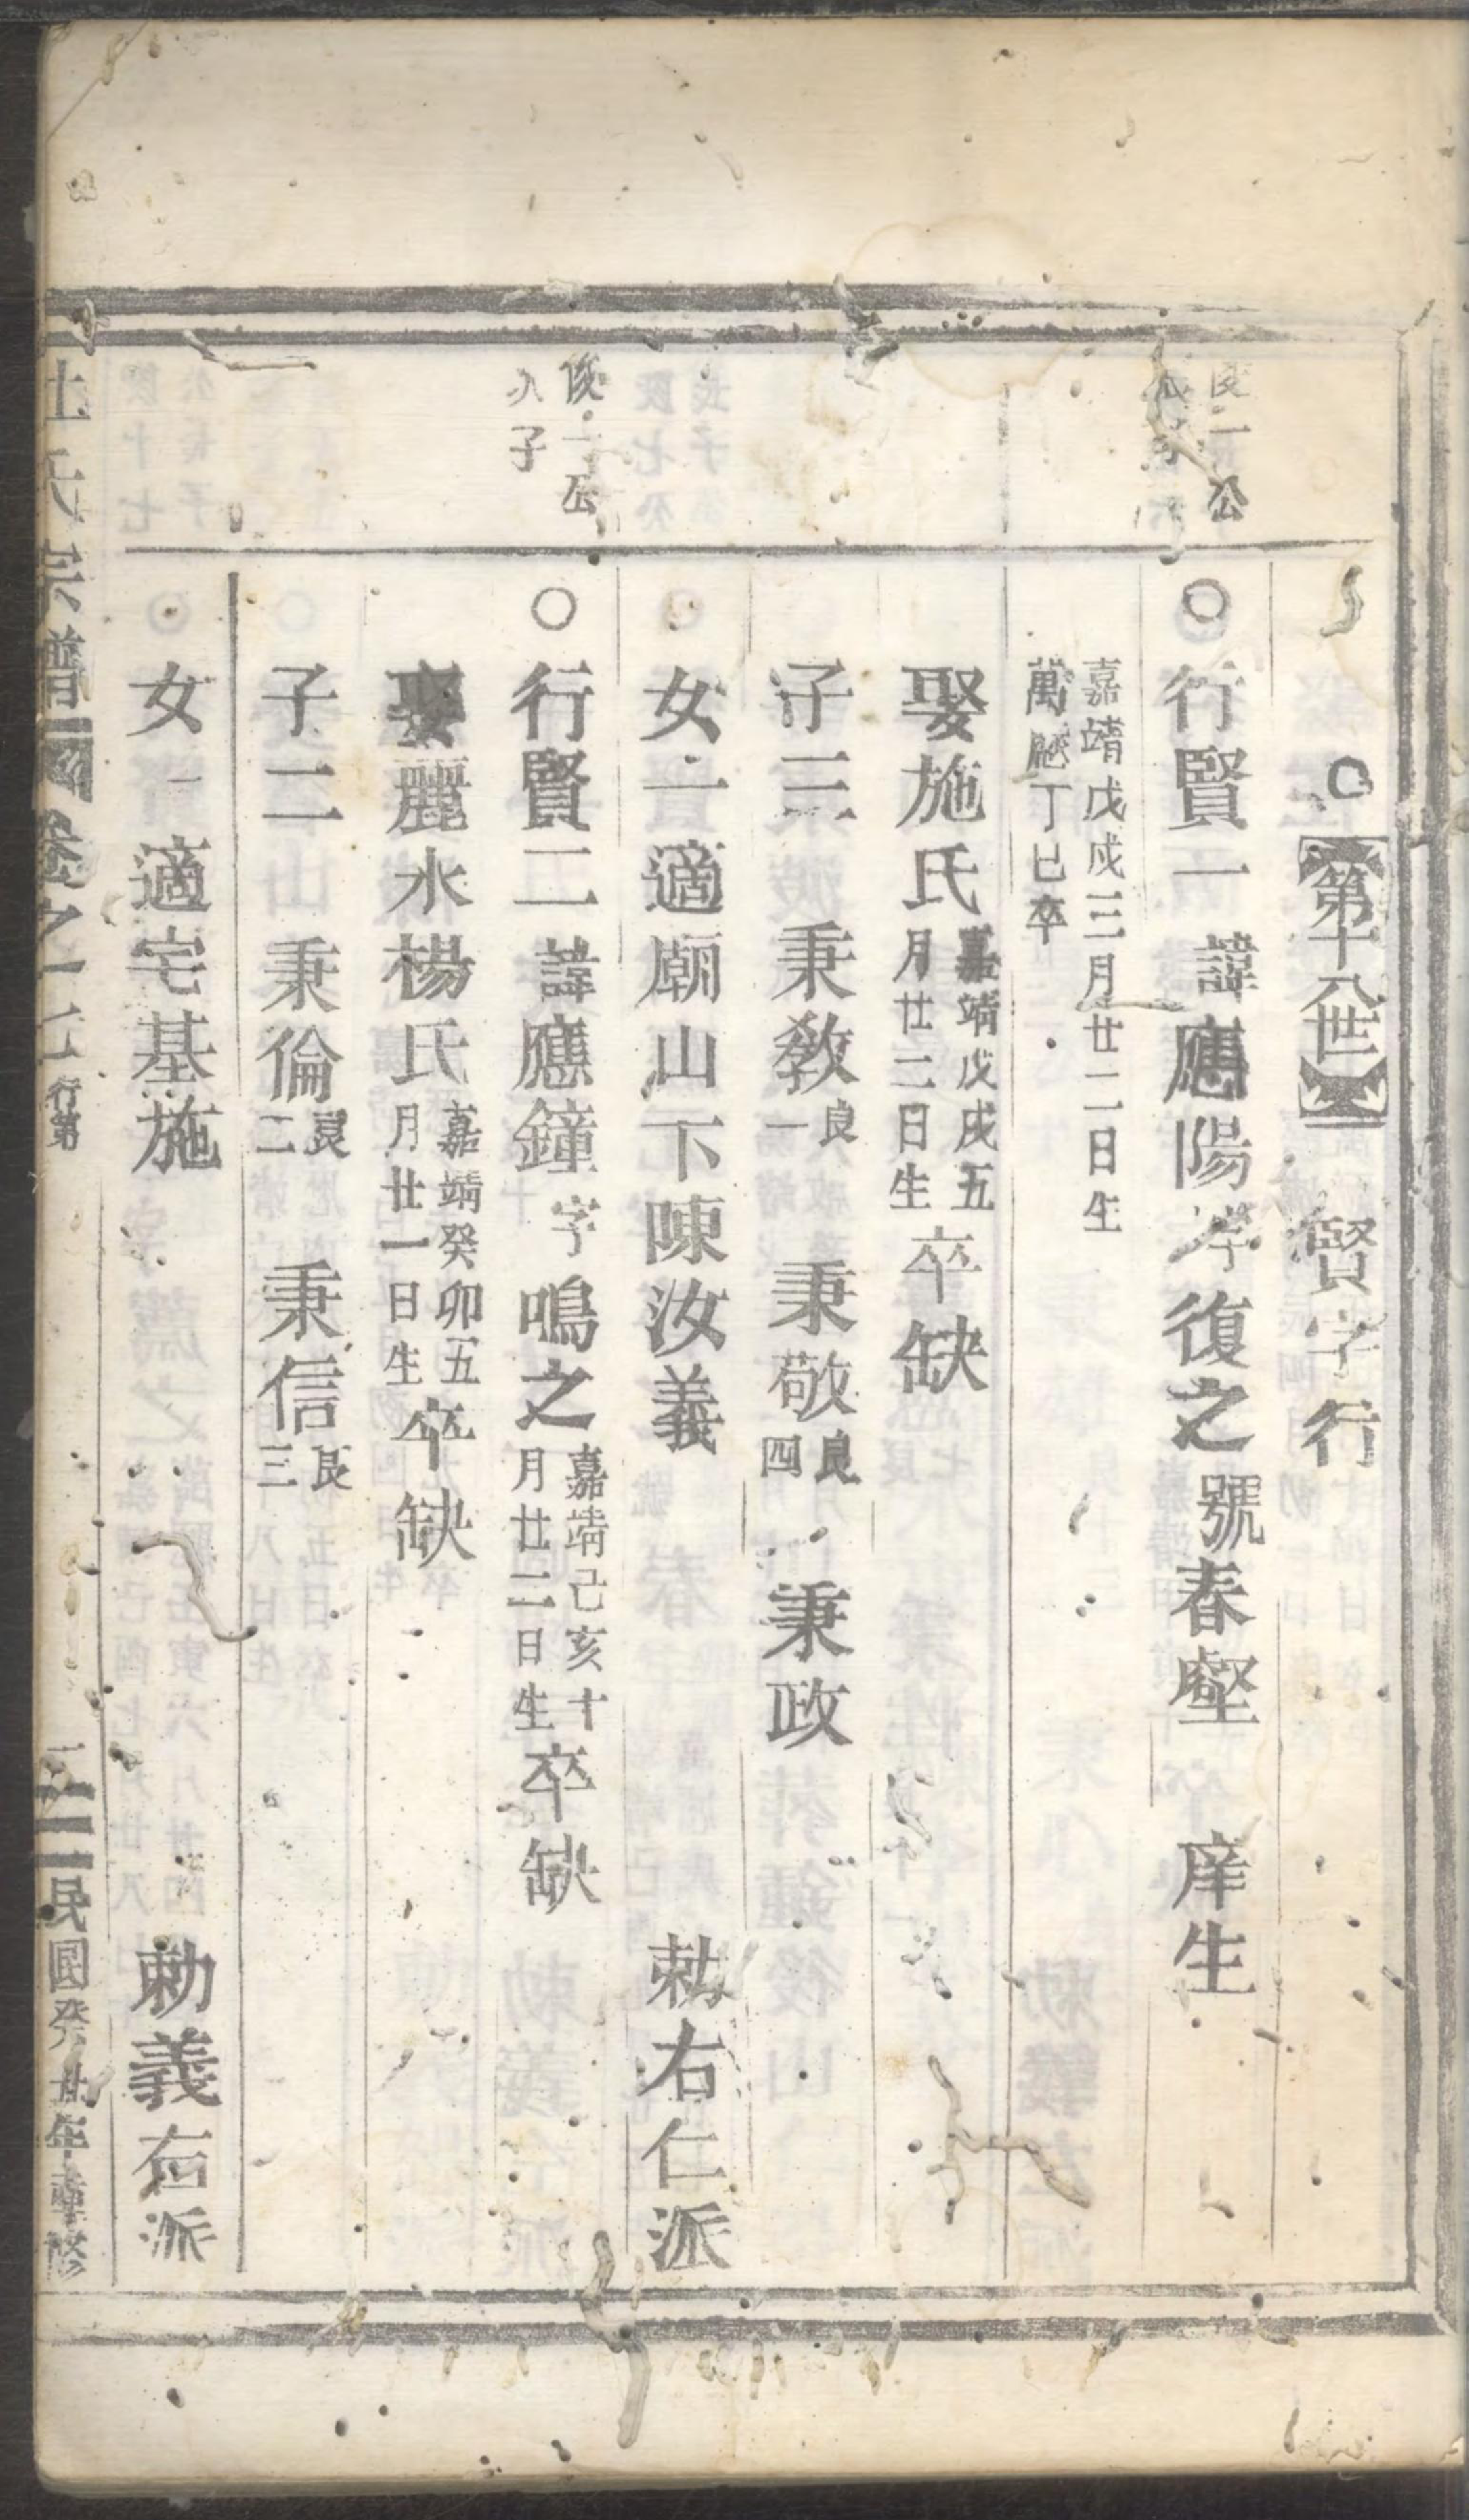 第十八世 賢字行
俊二公
子
○行賢一諱應陽字復之號春壑 庠生
嘉靖戊戌三月廿二日生
萬厯丁巳卒
娶施氏嘉靖戊戌五月廿二日生卒缺
子三 秉敎良一 秉敬良四 秉政
女一適廟山下陳汝義 勅右仁派
俊一公
子
○行賢二諱應鐘字鳴之嘉靖己亥十月廿二日生卒缺
娶麗水楊氏嘉靖癸卯五月廿一日生卒缺
子二 秉倫良二 秉信良三
女一適宅基施 勅義右派
杜氏宗譜 卷之 行第 民國癸 年重修